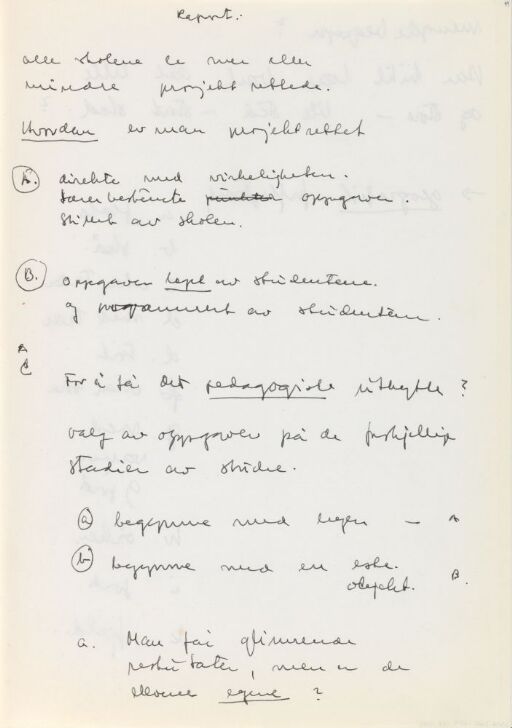 Rapport:
alle skolene er mer eller
mindre projektrettede.
Hvordan er man projektrettet
A. direkte med virkeligheten.
bestemte oppgaver.
stillet av skolen.
B. oppgaver av studentene.
og av studentene.
C
For å få det pedagogiske utbytte ?
valg av oppgaver på de forskjellige
stadier av studie.
a begynne med — A
b begynne med en
objekt. B.
a. Man får glimrende
resultater, men er de
elevene egne ?